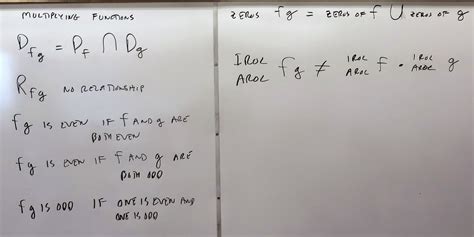 MULTIPLYING FUNCTIONS
D_fg = D_f ∩ D_g
R_fg NO RELATIONSHIP
fg IS EVEN IF f AND g ARE
BOTH EVEN
fg IS EVEN IF f AND g ARE
BOTH ODD
fg IS ODD IF ONE IS EVEN AND
ONE IS ODD
ZEROS fg = ZEROS OF f ∪ ZEROS OF g
IROC IROC IROC
AROC fg ≠ AROC f · AROC g